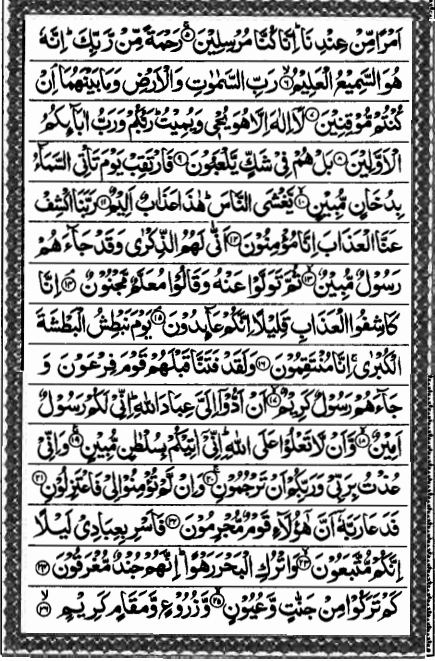 اَمْرًا مِّنْ عِنْدِنَا ؕ اِنَّا كُنَّا مُرْسِلِيْنَ ۚ۵ رَحْمَةً مِّنْ رَّبِّكَ ؕ اِنَّهٗ
هُوَ السَّمِيْعُ الْعَلِيْمُ ۙ۶ رَبِّ السَّمٰوٰتِ وَالْاَرْضِ وَمَا بَيْنَهُمَا ۘ اِنْ
كُنْتُمْ مُّوْقِنِيْنَ ۷ لَاۤ اِلٰهَ اِلَّا هُوَ يُحْيٖ وَيُمِيْتُ ؕ رَبُّكُمْ وَرَبُّ اٰبَآىِٕكُمُ
الْاَوَّلِيْنَ ۸ بَلْ هُمْ فِيْ شَكٍّ يَّلْعَبُوْنَ ۹ فَارْتَقِبْ يَوْمَ تَاْتِي السَّمَآءُ
بِدُخَانٍ مُّبِيْنٍ ۙ۱۰ يَّغْشَى النَّاسَ ؕ هٰذَا عَذَابٌ اَلِيْمٌ ۱۱ رَبَّنَا اكْشِفْ
عَنَّا الْعَذَابَ اِنَّا مُؤْمِنُوْنَ ۱۲ اَنّٰى لَهُمُ الذِّكْرٰى وَقَدْ جَآءَهُمْ
رَسُوْلٌ مُّبِيْنٌ ۙ۱۳ ثُمَّ تَوَلَّوْا عَنْهُ وَقَالُوْا مُعَلَّمٌ مَّجْنُوْنٌ ۘ۱۴ اِنَّا
كَاشِفُوا الْعَذَابِ قَلِيْلًا اِنَّكُمْ عَآىِٕدُوْنَ ۘ۱۵ يَوْمَ نَبْطِشُ الْبَطْشَةَ
الْكُبْرٰى ۚ اِنَّا مُنْتَقِمُوْنَ ۱۶ وَلَقَدْ فَتَنَّا قَبْلَهُمْ قَوْمَ فِرْعَوْنَ وَ
جَآءَهُمْ رَسُوْلٌ كَرِيْمٌ ۙ۱۷ اَنْ اَدُّوْۤا اِلَيَّ عِبَادَ اللّٰهِ ؕ اِنِّيْ لَكُمْ رَسُوْلٌ
اَمِيْنٌ ۙ۱۸ وَّاَنْ لَّا تَعْلُوْا عَلَى اللّٰهِ ؕ اِنِّيْۤ اٰتِيْكُمْ بِسُلْطٰنٍ مُّبِيْنٍ ۚ۱۹ وَاِنِّيْ
عُذْتُ بِرَبِّيْ وَرَبِّكُمْ اَنْ تَرْجُمُوْنِ ۚ۲۰ وَاِنْ لَّمْ تُؤْمِنُوْا لِيْ فَاعْتَزِلُوْنِ ۲۱
فَدَعَا رَبَّهٗۤ اَنَّ هٰۤؤُلَآءِ قَوْمٌ مُّجْرِمُوْنَ ۲۲ فَاَسْرِ بِعِبَادِيْ لَيْلًا
اِنَّكُمْ مُّتَّبَعُوْنَ ۙ۲۳ وَاتْرُكِ الْبَحْرَ رَهْوًا ؕ اِنَّهُمْ جُنْدٌ مُّغْرَقُوْنَ ۲۴
كَمْ تَرَكُوْا مِنْ جَنّٰتٍ وَّعُيُوْنٍ ۙ۲۵ وَّزُرُوْعٍ وَّمَقَامٍ كَرِيْمٍ ۙ۲۶